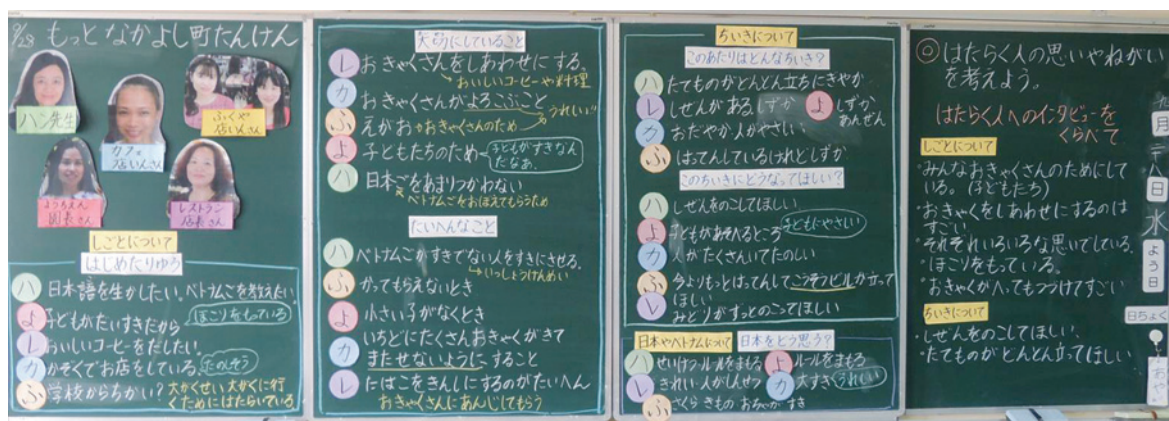 9/28 もっと なかよし町たんけん
ハン先生
カフェ
店いんさん
ふくや
店いんさん
ようちえん
園長さん
レストラン
店長さん
しごとについて
はじめたりゆう
ハ 日本語を生かしたい。ベトナムごを教えたい
よ 子どもがだいすきだから
ほこりをもっている
レ おいしいコーヒーをだしたい。
カ かぞくでお店をしている。
たのしそう
ふ 学校からちかい?
大がくせい 大がくに行
くためにはたらいている
大切にしていること
レ おきゃくさんをしあわせにする。
おいしいコーヒーや料理
カ おきゃくさんがよろこぶこと
うれしい
ふ えがお おきゃくさんのため
よ 子どもたちのため
子どもがすきなん
だなあ。
ハ 日本ごをあまりつかわない
ベトナムごをおぼえてもらうため
たいへんなこと
ハ ベトナムごがすきでない人をすきにさせる。
いっしょうけんめい
ふ かってもらえないとき
よ 小さい子がなくとき
カ いちどにたくさんおきゃくがきて
またせないようにすること
レ たばこをきんしにするのがたいへん
おきゃくさんにあんじてもらう
ちいきについて
このあたりはどんなちいき?
ハ たてものがどんどん立ちにぎやか
レ しぜんがある しずか
よ しずか
あんぜん
カ おだやか 人がやさしい
ふ はってんしているけれどしずか
このちいきにどうなってほしい?
ハ しぜんをのこしてほしい
よ 子どもがあそべるところ
子どもにやさしい
カ 人がたくさんいてたのしい
ふ 今よりもっとはってんしてこうそうビルが立って
ほしい
レ みどりがずっとのこってほしい
日本やベトナムについて
日本をどう思う?
ハ せいけつ ルールをまもる
よ ルールをまもる
レ きれい・人がしんせつ
カ 大すき
うれしい
ふ さくら きもの おちゃが すき
◎はたらく人の思いやねがい
を考えよう。
はたらく人へのインタビューを
くらべて
しごとについて
・みんなおきゃくさんのためにして
いる。(子どもたち)
・おきゃくをしあわせにするのは
すごい。
・それぞれいろいろな思いでしている。
・ほこりをもっている。
・おきゃくがへってもつづけてすごい
ちいきについて
・しぜんをのこしてほしい。
・たてものがどんどん立ってほしい
月
日
水
よう日
日ちょく